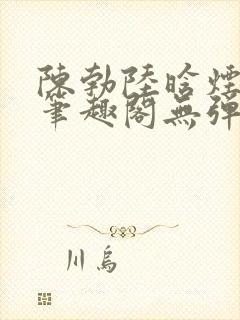 陳勃陸晗煙
筆趣閣無彈
川烏